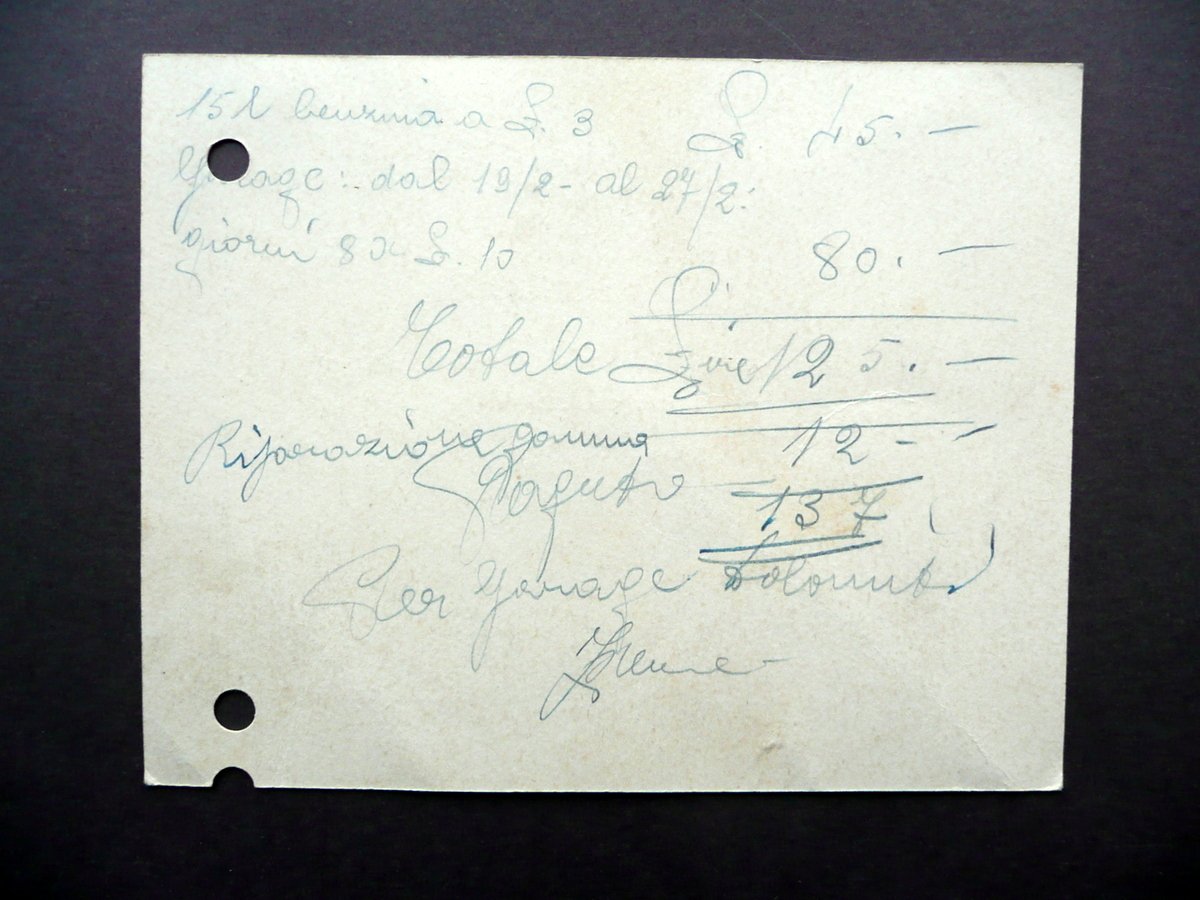 15 l benzina a L. 3 L. 45.—
Garage: dal 19/2 - al 27/2:
giorni 8 a L. 10 80.—
Totale Lire 125.—
Riparazione gomma 12 - -
Pagato 137
Per Garage Dolomiti